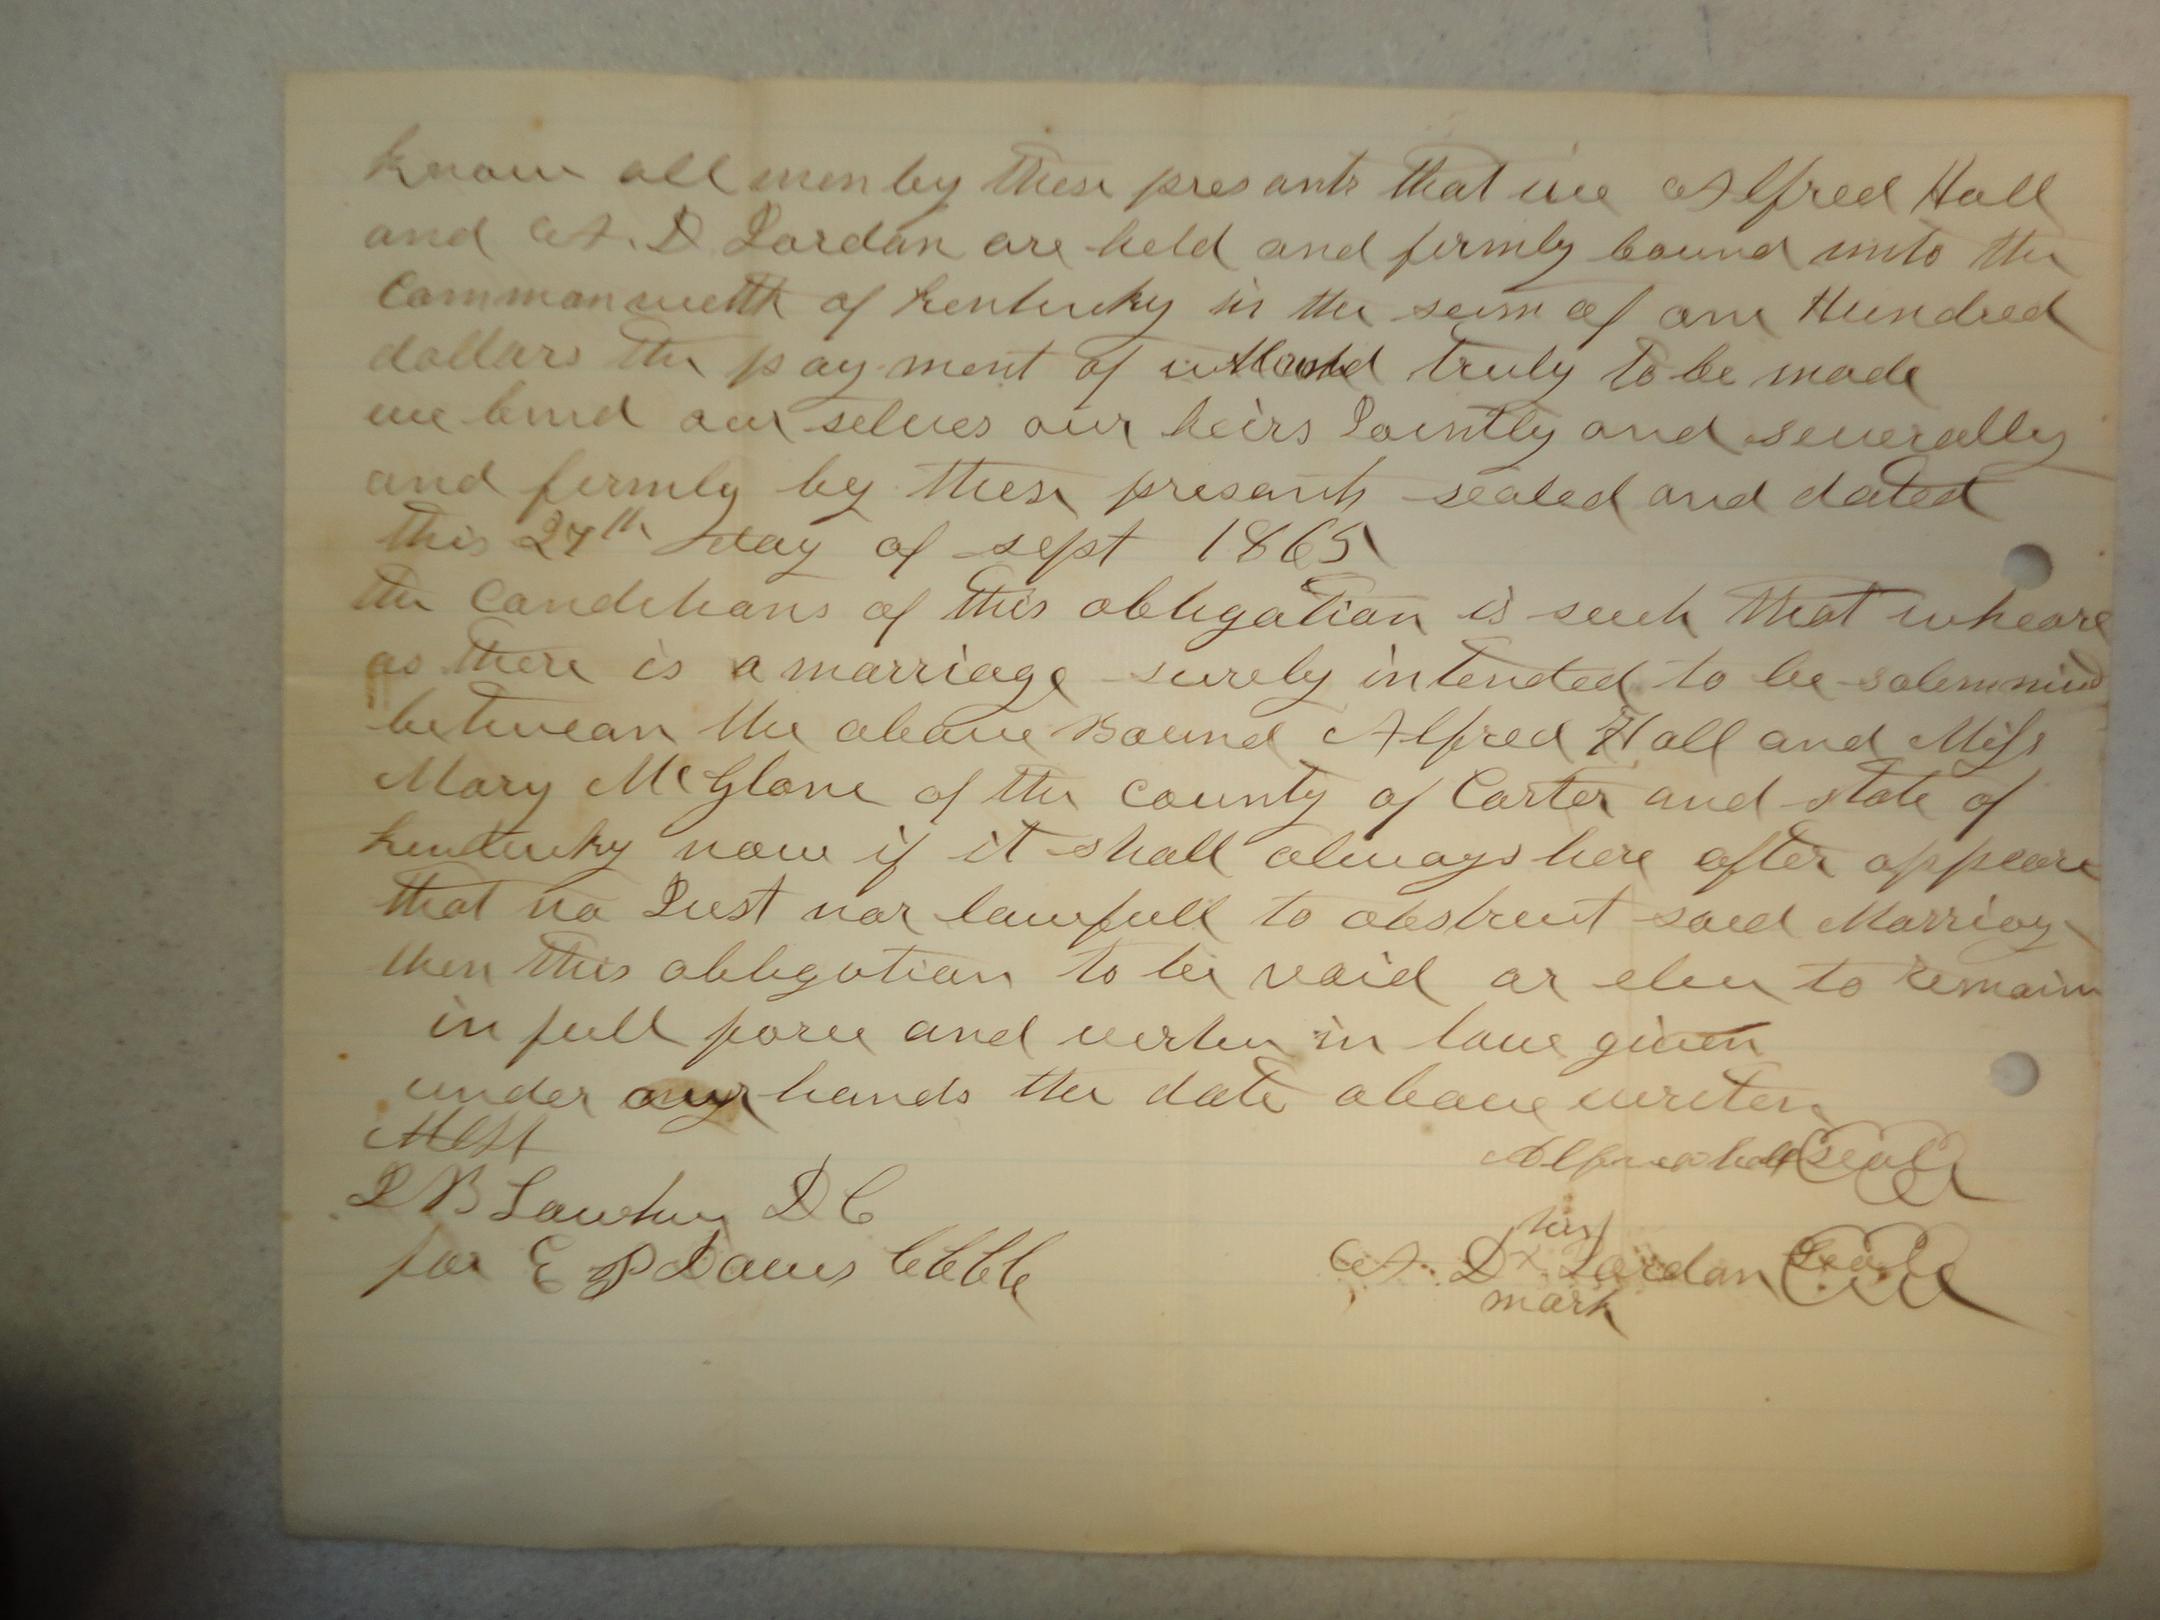 Know all men by these presants that we Alfred Hall
and A. D Jordan are held and firmly bound unto the
Commonwelth of Kentucky in the sum of one Hundred
dollars the payment of will and truly to be made
we bind our selves our heirs Jointly and severally
and firmly by these presants sealed and dated
this 27th day of sept 1865
the Conditions of this obligation is such that wheare
as there is a marriage surely intended to be solemnised
betwean the above Bound Alfred Hall and Miss
Mary McGlone of the county of Carter and state of
Kentucky now if it shall always here after appeare
that no Just nor lawfull to obstruct said Marriag
then this obligation to be void or else to remain
in full force and vertue in law given
under our hands the date above writen
Attst
J B D C
for E P Davis CCCC
Alfred hall Seal
his
A. D x Jordan Seal
mark